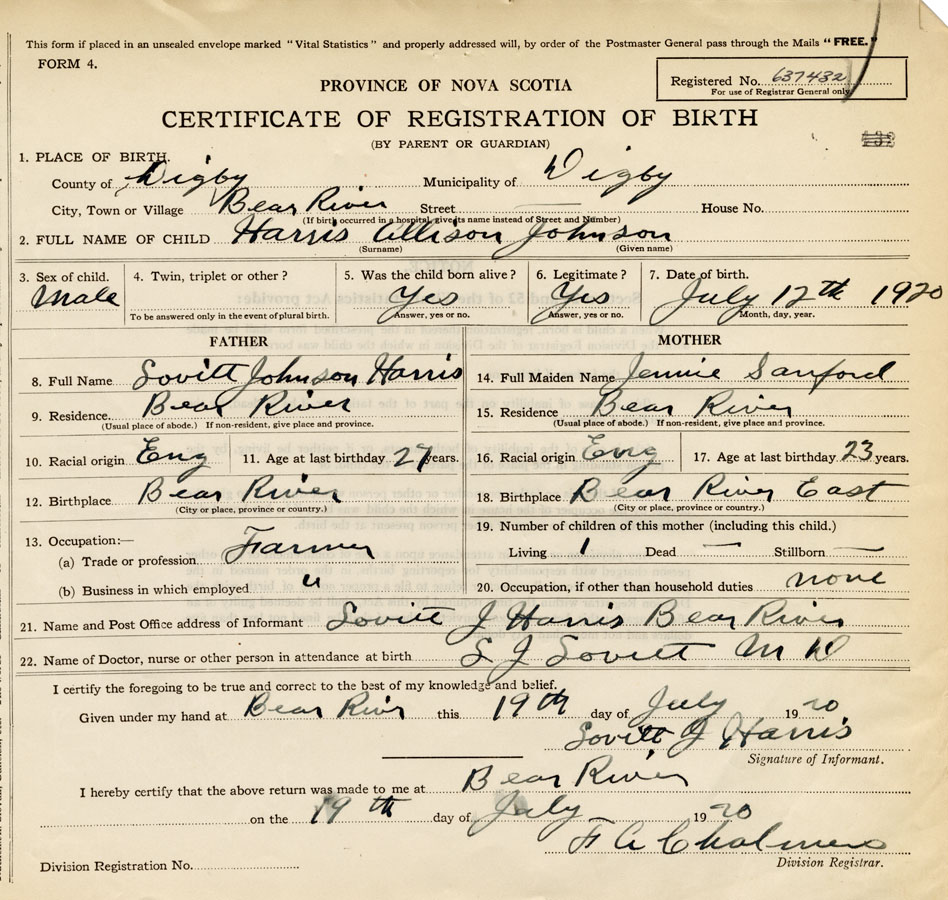 This form if placed in an unsealed envelope marked "Vital Statistics" and properly addressed will, by order of the Postmaster General pass through the Mails "FREE."
FORM 4.
Registered No. 637432
For use of Registrar General only
PROVINCE OF NOVA SCOTIA
CERTIFICATE OF REGISTRATION OF BIRTH
(BY PARENT OR GUARDIAN)
1. PLACE OF BIRTH.
County of Digby Municipality of Digby
City, Town or Village Bear River Street House No.
(If birth occurred in a hospital, give its name instead of Street and Number)
2. FULL NAME OF CHILD Harris Allison Johnson
(Surname) (Given name)
3. Sex of child. Male
4. Twin, triplet or other?
To be answered only in the event of plural birth.
5. Was the child born alive? Yes
Answer, yes or no.
6. Legitimate? Yes
Answer, yes or no.
7. Date of birth. July 12th 1920
Month, day, year.
FATHER
8. Full Name Lovitt Johnson Harris
9. Residence. Bear River
(Usual place of abode.) If non-resident, give place and province.
10. Racial origin Eng 11. Age at last birthday 27 years.
12. Birthplace Bear River
(City or place, province or country.)
13. Occupation:—
(a) Trade or profession. Farmer
(b) Business in which employed "
MOTHER
14. Full Maiden Name Jennie Sanford
15. Residence Bear River
(Usual place of abode.) If non-resident, give place and province.
16. Racial origin Eng 17. Age at last birthday 23 years.
18. Birthplace Bear River East
(City or place, province or country.)
19. Number of children of this mother (including this child.)
Living 1 Dead — Stillborn —
20. Occupation, if other than household duties none
21. Name and Post Office address of Informant Lovitt J Harris Bear River
22. Name of Doctor, nurse or other person in attendance at birth L J Lovitt M D
I certify the foregoing to be true and correct to the best of my knowledge and belief.
Given under my hand at Bear River this 19th day of July 1920
Lovitt J Harris
Signature of Informant.
I hereby certify that the above return was made to me at Bear River
on the 19th day of July 1920
F A Chalmers
Division Registrar.
Division Registration No.